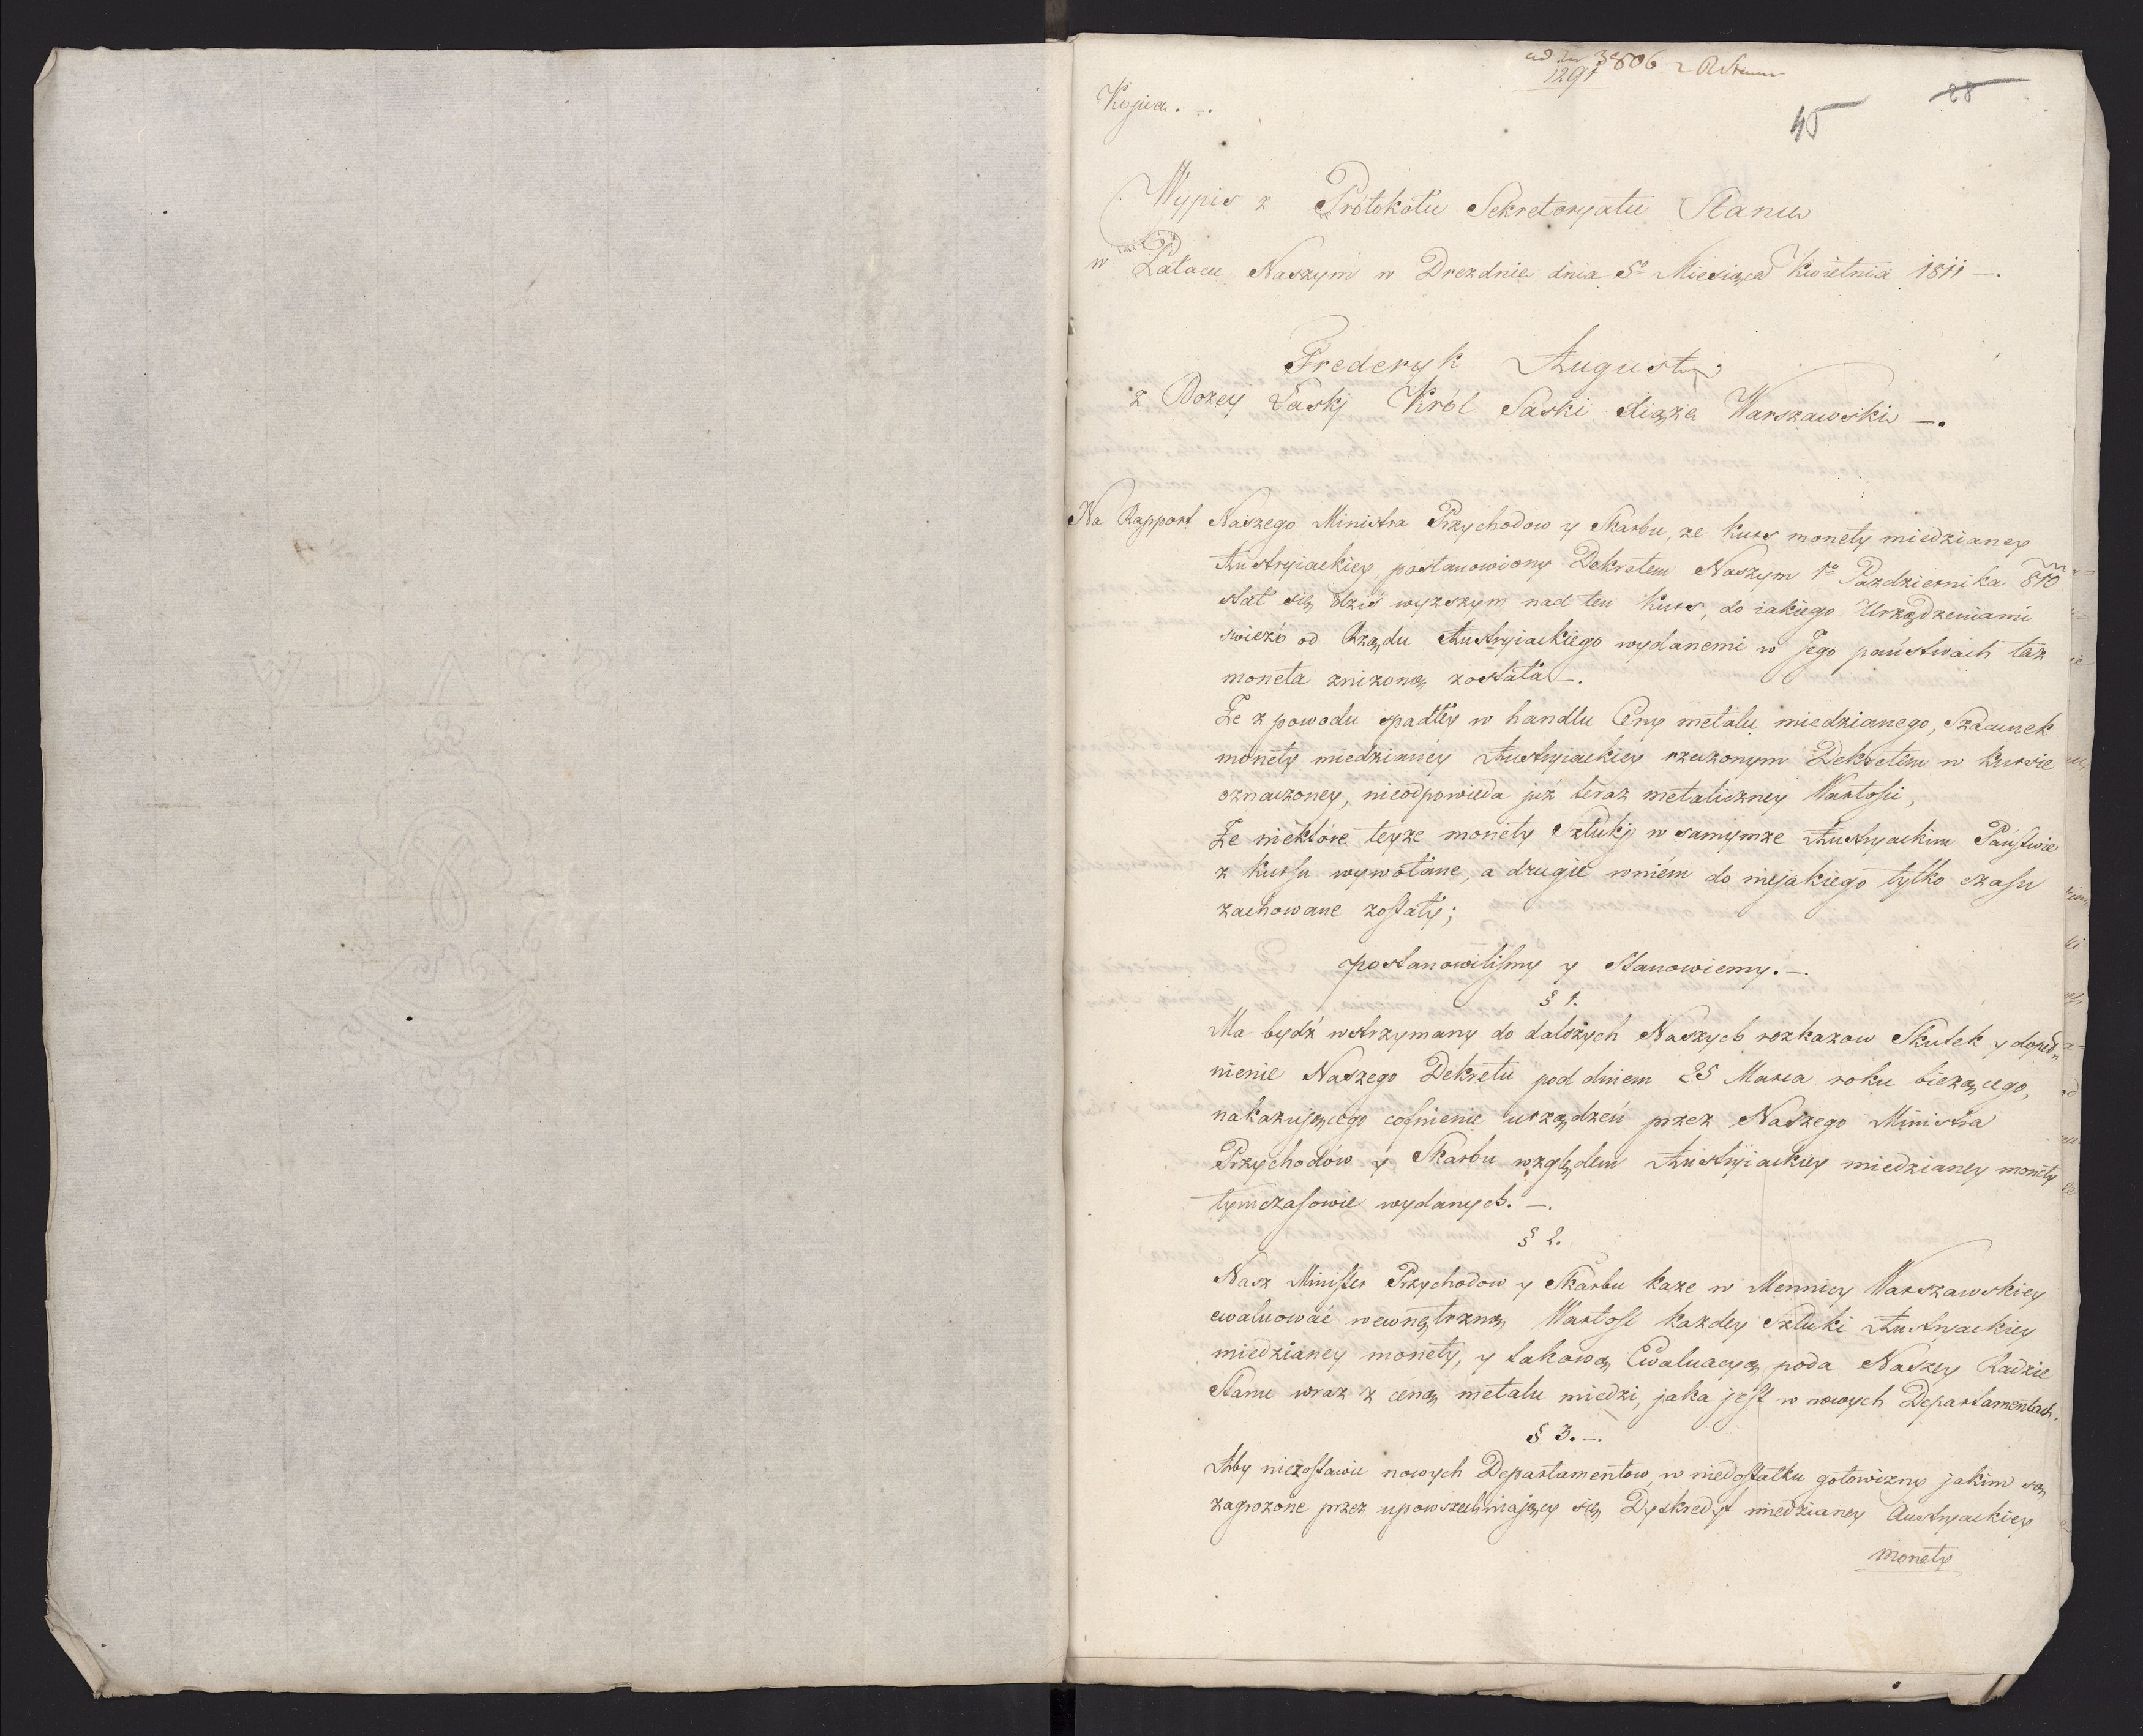 ad Nr 3806
1291
Kopia. —.
45
28
Wypis z Protokółu Sekretoryatu Stanu
w Pałacu Naszym w Dreźnie dnia 5o Miesiąca Kwietnia 1811 —.
Frederyk August
z Bożey Łaski Król Saski Xiąże Warszawski —.
Na Rapport Naszego Ministra Przychodow y Skarbu, ze kurs monety miedzianey
Austryiackiey postanowiony Dekretem Naszym 1o Pazdziernika 810
stał się dziś wyższym nad ten kurs, do iakiego Urządzeniami
świeżo od Rządu Austryiackiego wydanemi w Jego państwach taż
moneta zniżoną została —.
Że z powodu spadłey w handlu Ceny metalu miedzianego, Szacunek
monety miedzianey Austryiackiey rzeczonym Dekretem w kursie
oznaczoney, nieodpowieda już teraz metaliczney Wartości,
Że niektóre teyże monety Sztuki w samymże Austryackim Państwie
z kursu wywołane, a drugie w niém do niejakiego tylko czasu
zachowane zostały;
postanowiliśmy y Stanowiemy. —.
§ 1.
Ma bydź wstrzymany do dalszych Naszych rozkazow Skutek y dopeł-
nienie Naszego Dekretu pod dniem 25 Marca roku bieżącego,
nakazującego cofnienie urządzeń przez Naszego Ministra
Przychodów y Skarbu względem Austryiackiey miedzianey monety
tymczasowie wydanych. —.
§ 2.
Nasz Minister Przychodow y Skarbu każe w Mennicy Warszawskiey
ewaluować wewnętrzną Wartość każdey Sztuki Austryackiey
miedzianey monety, y takową Ewaluacyą poda Naszey Radzie
Stanu wraz z ceną metalu miedzi, jaka jest w nowych Departamentach.
§ 3. —.
Aby niezostawić nowych Departamentow w niedostatku gotowizny jakim są
zagrożone przez upowszechniający się Dyskredyt miedzianey Austryackiey
monety